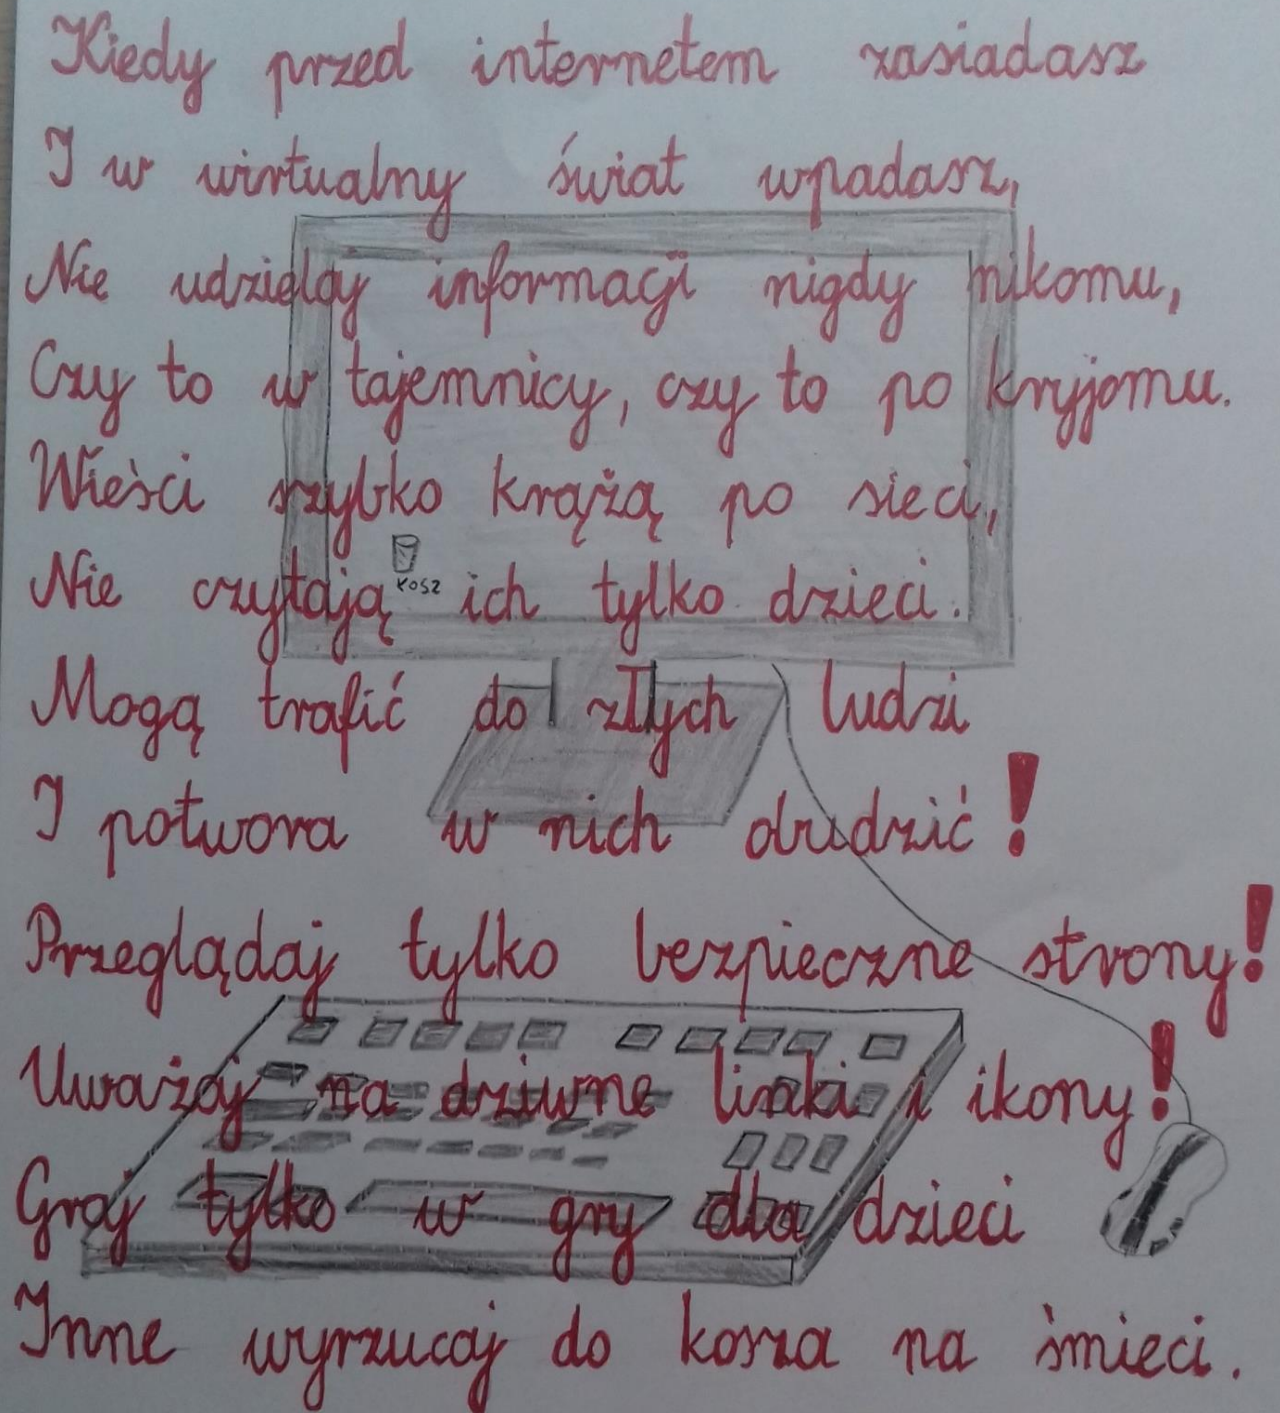 Kiedy przed internetem zasiadasz
I w wirtualny świat wpadasz,
Nie udzielaj informacji nigdy nikomu,
Czy to w tajemnicy, czy to po kryjomu.
Wieści szybko krążą po sieci,
KOSZ
Nie czytają ich tylko dzieci.
Mogą trafić do złych ludzi
I potwora w nich obudzić!
Przeglądaj tylko bezpieczne strony!
Uważaj na dziwne linki i ikony!
Graj tylko w gry dla dzieci
Inne wyrzucaj do kosza na śmieci.